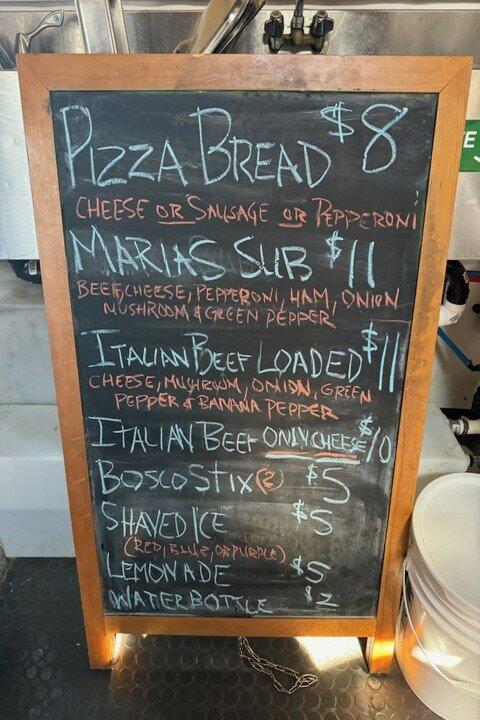 PIZZA BREAD $8
CHEESE OR SAUSAGE OR PEPPERONI
MARIAS SUB $11
BEEF, CHEESE, PEPPERONI, HAM, ONION
MUSHROOM & GREEN PEPPER
ITALIAN BEEF LOADED $11
CHEESE, MUSHRUM, ONION, GREEN
PEPPER & BANANA PEPPER
ITALIAN BEEF ONLY CHEESE $10
BOSCO STIX (2) $5
SHAVED ICE $5
(RED, BLUE, OR PURPLE)
LEMONADE $5
WATER BOTTLE $2
E